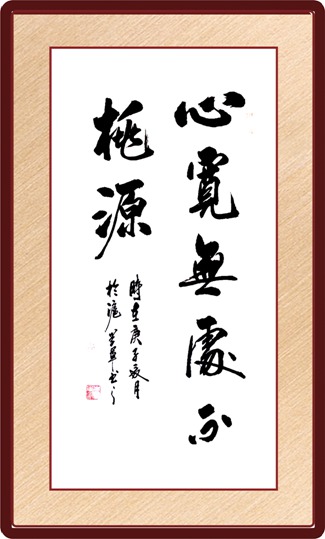 心寬無處不
桃源
時在庚子夏月
於滬